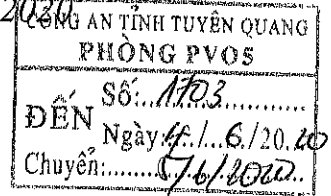 2020
CÔNG AN TỈNH TUYÊN QUANG
PHÒNG PV05
ĐẾN
Số:...1703...........
Ngày:4./...6./20.20
Chuyển:......5/6/2020..